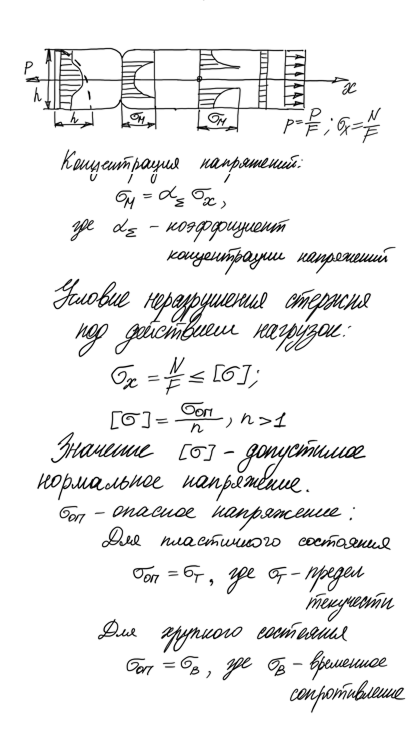 P
h
h
σм
σм
x
p=P/F; σx=N/F
Концентрация напряжений:
σм = αε σx,
где αε – коэффициент
концентрации напряжений
Условие неразрушения стержня
под действием нагрузок:
σx = N/F ≤ [σ];
[σ] = σоп/n, n>1
Значение [σ] - допустимое
нормальное напряжение.
σоп - опасное напряжение:
Для пластичного состояния
σоп = σт, где σт – предел
текучести
Для хрупкого состояния
σоп = σв, где σв – временное
сопротивление